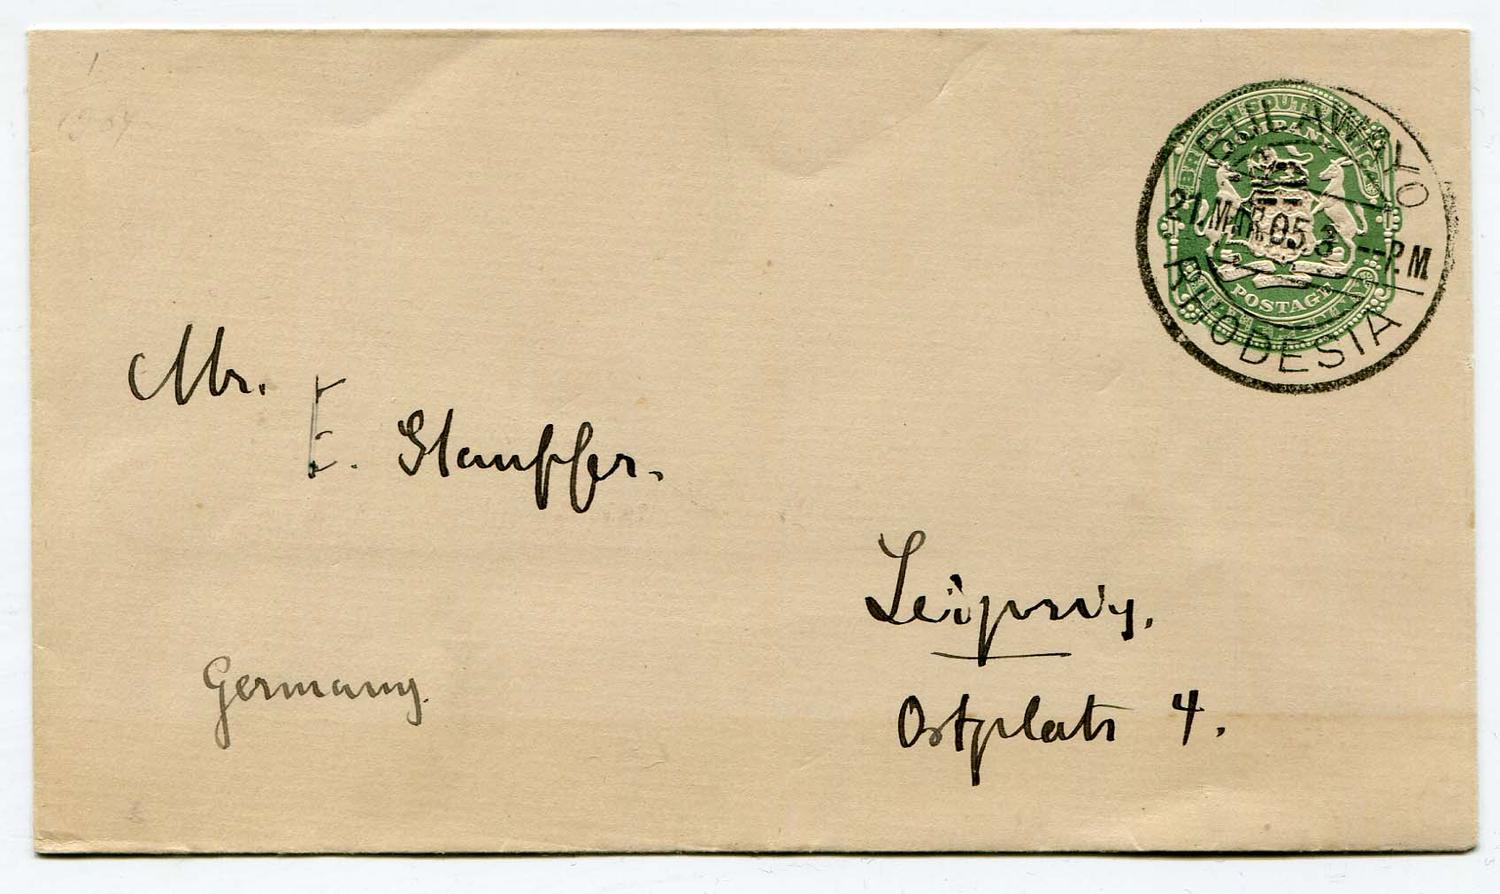 BRITISH SOUTH AFRICA
COMPANY
POSTAGE
BULAWAYO
21 MAR 05 3 -- P.M
RHODESIA
Mr.
E. Stauffer.
Leipzig.
Ostplatz 4.
Germany.